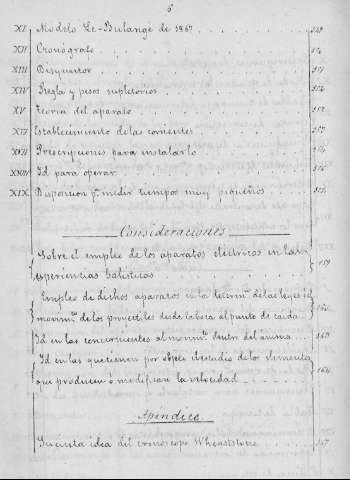 6
XI Modelo Le-Bulangé de 1867
XII Cronógrafo
XIII Disyuntor
XIV Regla y pesos supletorios
XV Teoria del aparato
XVI Establecimiento de las corrientes
XVII Prescripciones para instalarlo
XVIII Id para operar
XIX Disposicion pª medir tiempos muy pequeños
Consideraciones
Sobre el empleo de los aparatos eléctricos en las
esperiencias balísticas 159
Empleo de dichos aparatos en la determⁿ de las leyes del
movimᵗᵒ de los proyectiles desde la boca al punto de caida
Id en las concernientes al movimᵗᵒ dentro del anima
Id en las que tienen por objeto el estudio de los elementos
que producen ó modifican la velocidad
Apéndice
Sucinta idea del cronoscopo Wheatstone 167